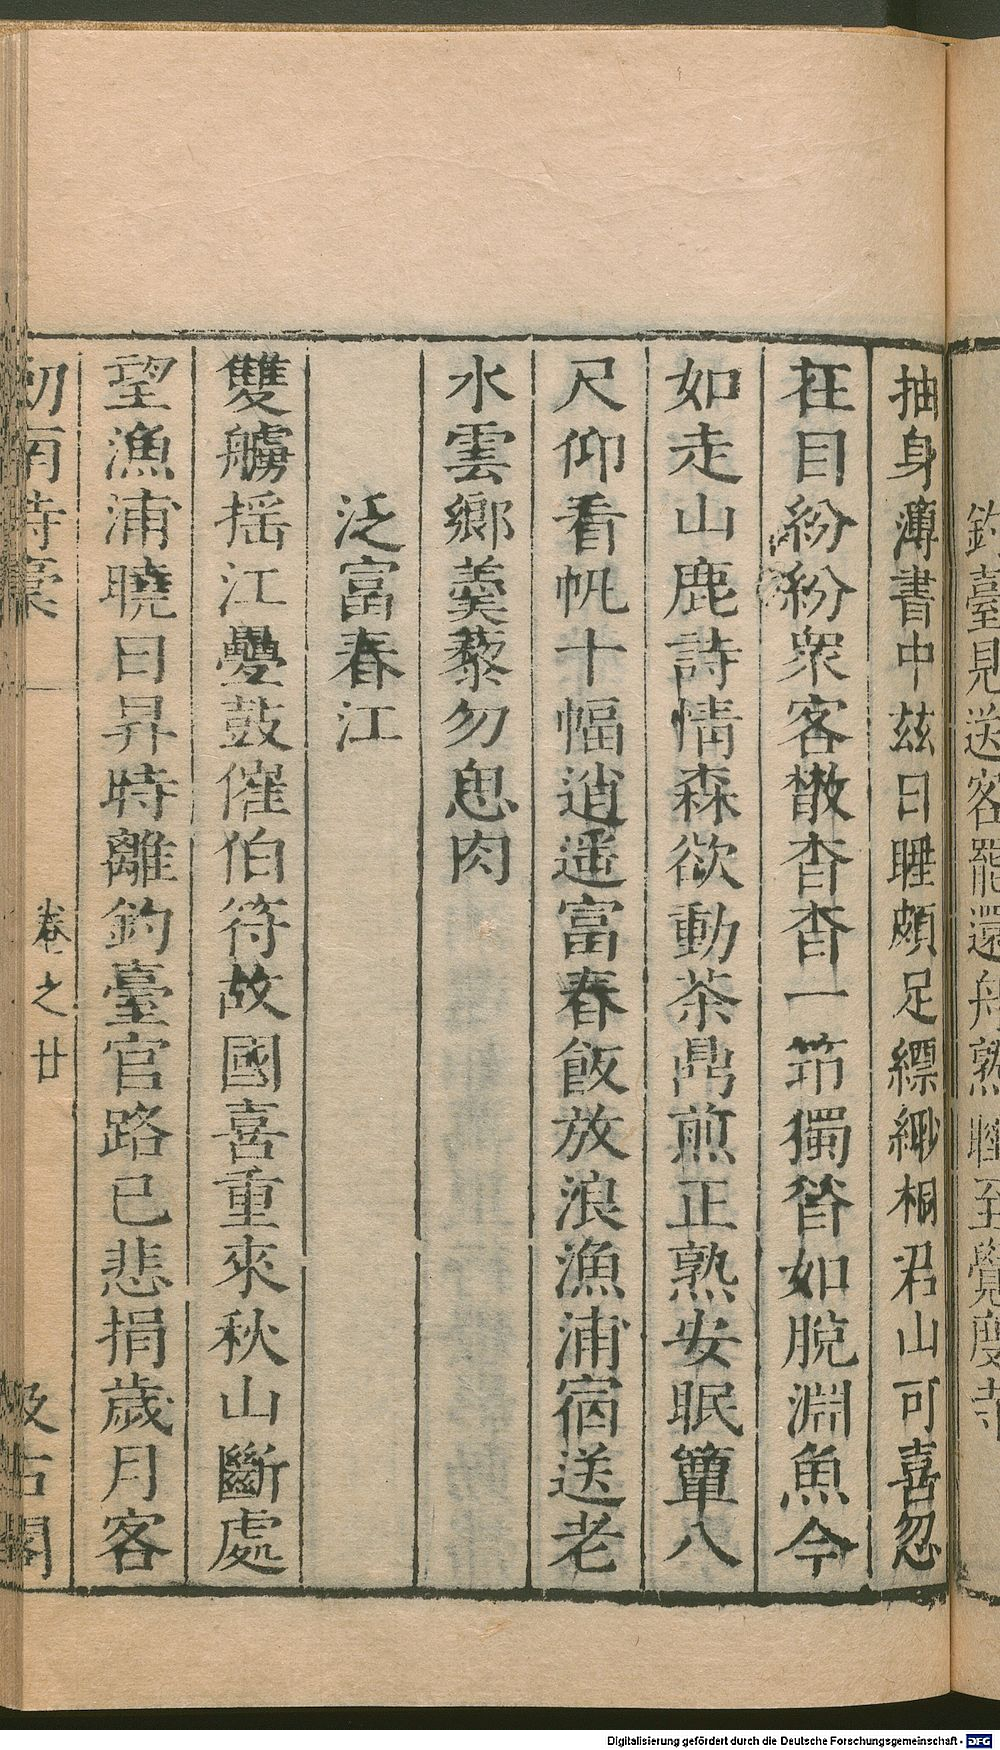 釣臺見送客罷還舟熟睡至覺度寺
抽身薄書中茲日睡頗足縹緲桐君山可喜忽
在目紛紛衆客散杳杳一笻獨昝如脫淵魚今
如走山鹿詩情森欲動茶鼎煎正熟安眠簟八
尺仰看帆十幅逍遥富春飯放浪漁浦宿送老
水雲鄉羹藜勿思肉
泛富春江
雙艣揺江疊鼓催伯符故國喜重來秋山斷處
望漁浦曉日昇時離釣臺官路已悲捐歲月客
劒南詩稾 卷之廿 汲古閣
Digitalisierung gefördert durch die Deutsche Forschungsgemeinschaft - DFG